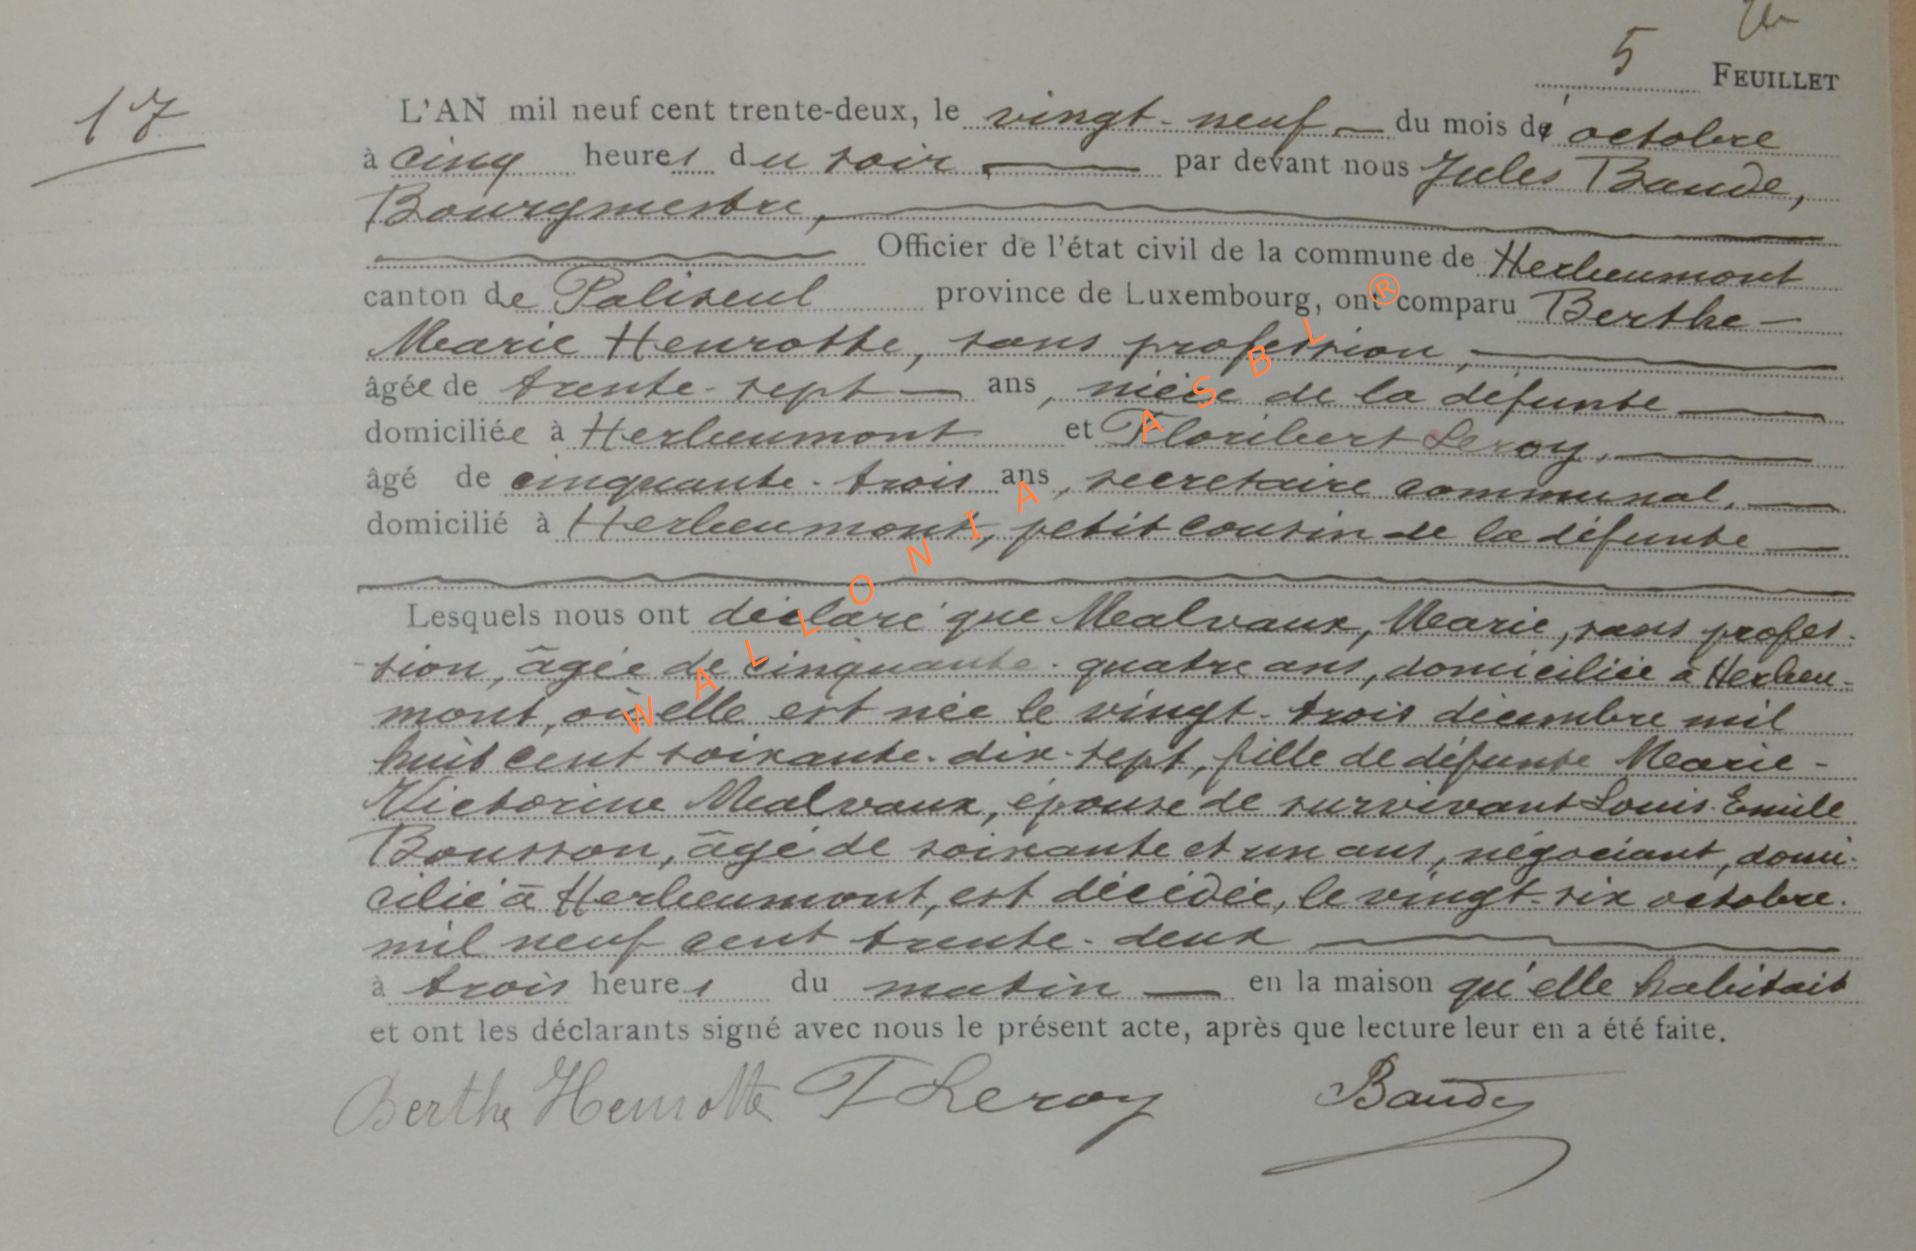 5 FEUILLET
17
L'AN mil neuf cent trente-deux, le vingt-neuf du mois d'octobre
à cinq heures du soir, par devant nous Jules Baude,
Bourgmestre,
Officier de l'état civil de la commune de Herbeumont
canton de Paliseul province de Luxembourg, ont comparu Berthe-
Marie Henrotte, sans profession,
âgée de trente-sept ans, nièce de la défunte
domiciliée à Herbeumont et Floribert Leroy,
âgé de cinquante-trois ans, secrétaire communal,
domicilié à Herbeumont, petit cousin de la défunte
Lesquels nous ont déclaré que Mealvaux, Marie, sans profes-
-sion, âgée de cinquante-quatre ans, domiciliée à Herbeu-
mont, où elle est née le vingt-trois décembre mil
huit cent soixante-dix-sept, fille de défunte Marie-
Victorine Mealvaux, épouse de survivant Louis-Emile
Bousson, âgé de soixante et un ans, négociant, domi-
cilié à Herbeumont, est décédée, le vingt-six octobre
mil neuf cent trente-deux
à trois heures du matin en la maison qu'elle habitait
et ont les déclarants signé avec nous le présent acte, après que lecture leur en a été faite.
Berthe Henrotte F Leroy Baude
WALLONIA ASBL ®